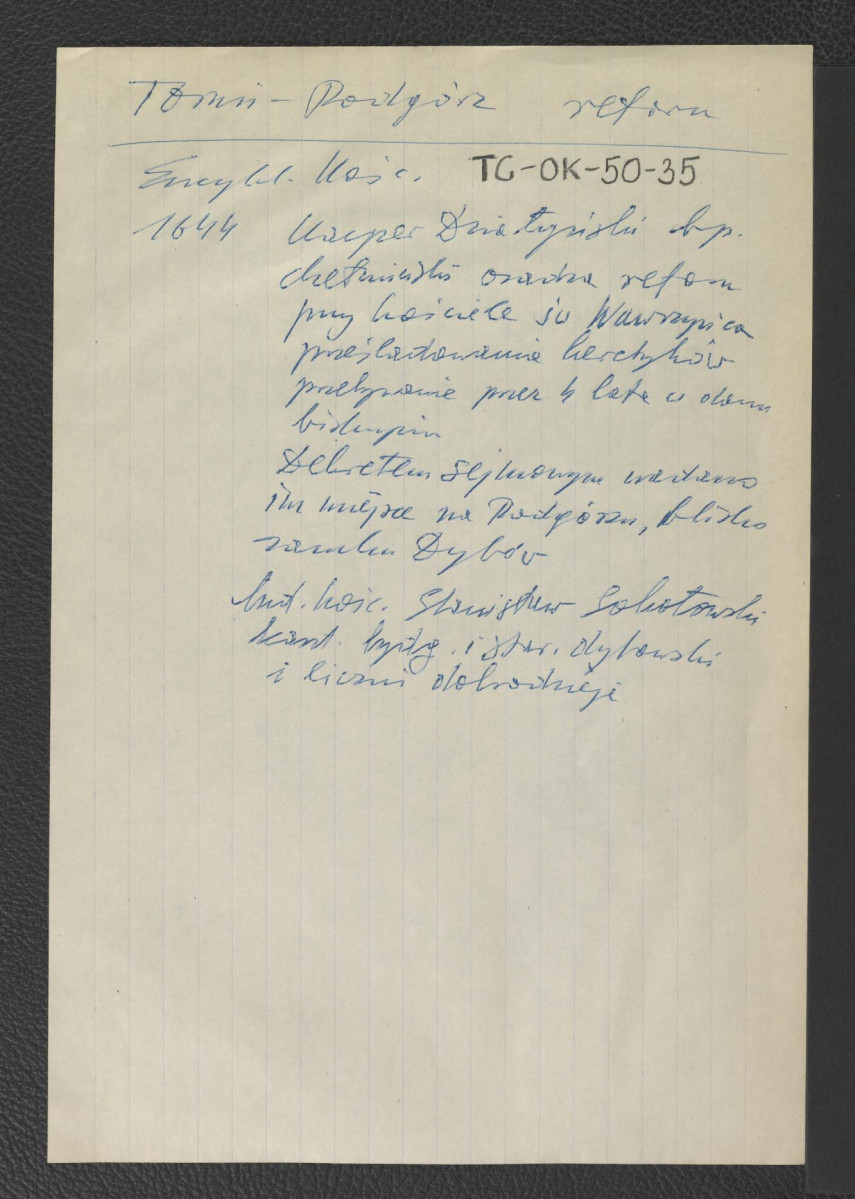 Toruń – Podgórz reform
Encykl. Kośc. TG-OK-50-35
1644 Kacper Działyński bp.
chełmiński osadza reform
przy kościele św Wawrzyńca
prześladowania heretyków
przebywanie przez 4 lata w domu
biskupim
Dekretem sejmowym nadano
im miejsce na Podgórzu, blisko
zamku Dybów
bud. kośc. Stanisław Sokołowski
kaszt. bydg. i star. dybowski
i liczni dobrodzieje